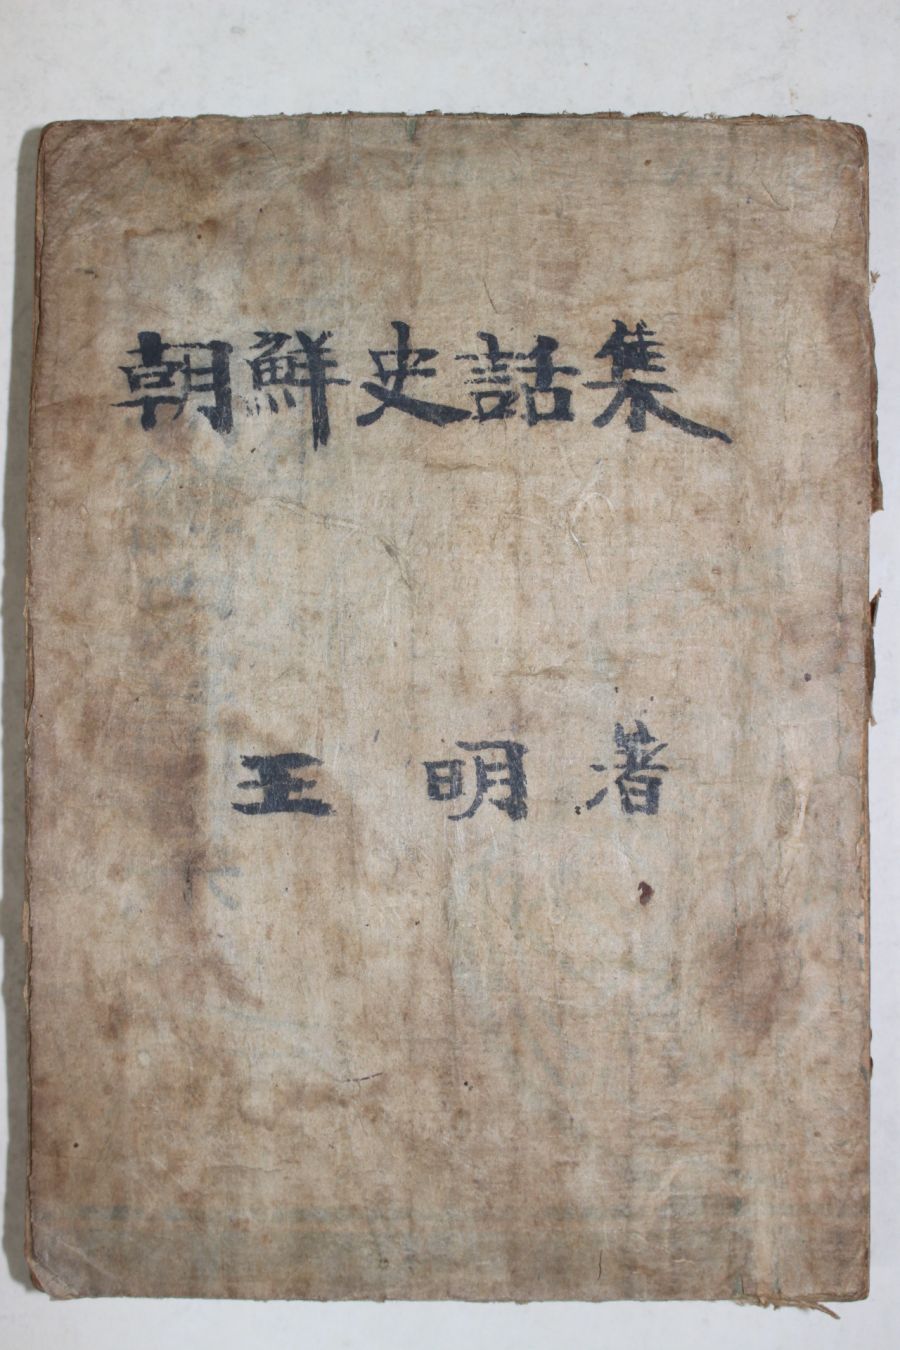 朝鮮史話集
王明著